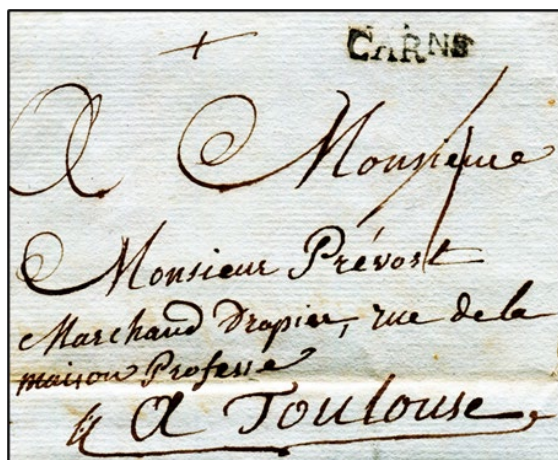 CARNS
A Monsieur
Monsieur Prévost
Marchand Drapier, rue de la
maison Professe
A Toulouse